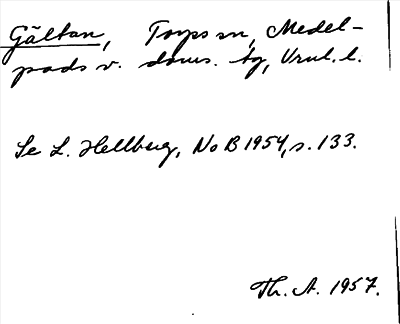 Gältan, Torps sn, Medel-
pads v. doms. tg, Vnul. l.
Se L. Hellberg, NoB 1954, s. 133.
Th. A. 1957.